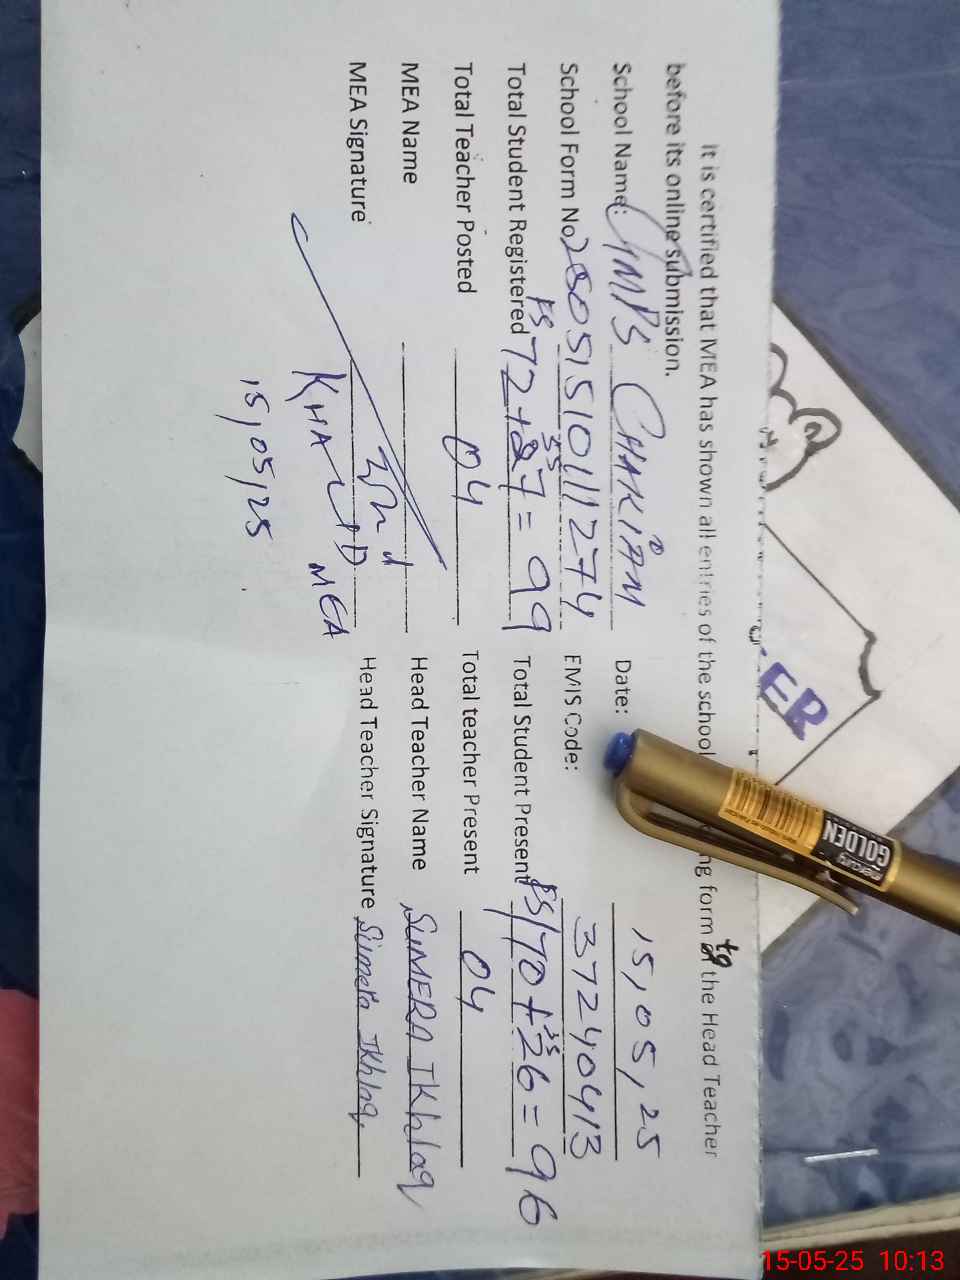 It is certified that MEA has shown all entries of the school ng form to the Head Teacher
before its online submission.
School Name: GMPS CHAKIAM Date: 15,05,25
School Form No 280515510111274 EMIS Code: 37240413
Total Student Registered PS 72 + SS 27 = 99 Total Student Present PS 70 + SS 26 = 96
Total Teacher Posted 04 Total teacher Present 04
MEA Name Head Teacher Name SUMERA IKhlaq
MEA Signature KHALID MEA Head Teacher Signature Sumera Ikhlaq
15,05,25
ER
mercury
GOLDEN
15-05-25 10:13